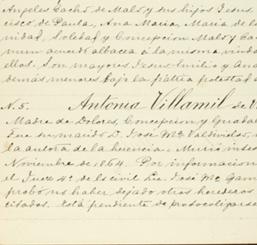 Angeles Cacho de Malo y sus hijos Jesus
cisco de Paula, Ana Maria, Maria de la
nidad, Soledad y Concepcion Malo y Ca
mun acuerdo albacea á la misma, viuda
ellas. Son mayores Jesus Emilio y Ana
demás menores bajo la pátria potestad d
N. 5. Antonia Villamil de V
Madre de Dolores, Concepcion y Guadal
Fué su marido D. José Ma. Valdivielso,
la autora de la herencia. Murió intes
Noviembre de 1864. Por informacion
el Juez 4o. de lo civil Lic. José Ma. Gam
probó no haber dejado otros herederos
citados. Está pendiente de protocolizarse